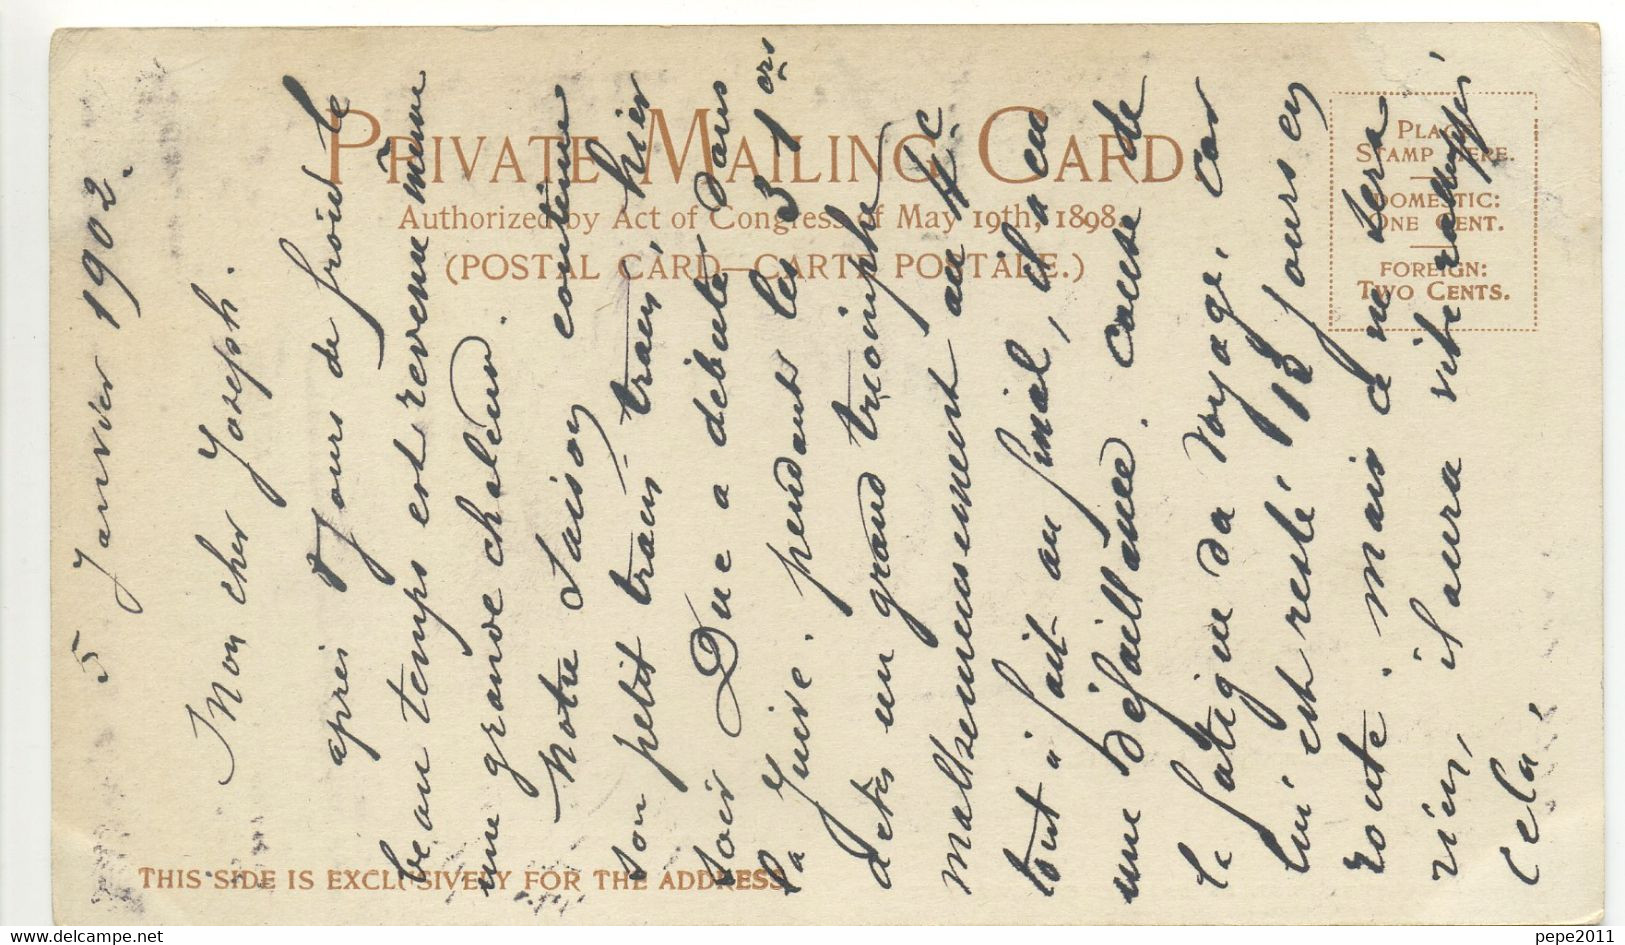 5 Janvier 1902.
Mon cher Joseph.
après 8 jours de froid le
beau temps est revenu même
une grande chaleur.
Notre Saison continue
son petit train-train, hier
soir Duc a débuté dans
la Juive. pendant les 3 1ers
actes un grand triomphe
malheureusement au 4e
tout à fait au final, il a eu
une défaillance. cause de
la fatigue du voyage, car
lui est resté 18 jours en
route. mais ce ne sera
rien, il aura vite
cela.
PRIVATE MAILING CARD
Authorized by Act of Congress of May 19th, 1898.
(POSTAL CARD—CARTE POSTALE.)
PLACE
STAMP HERE.
DOMESTIC:
ONE CENT.
FOREIGN:
TWO CENTS.
THIS SIDE IS EXCLUSIVELY FOR THE ADDRESS
www.delcampe.net
pepe2011